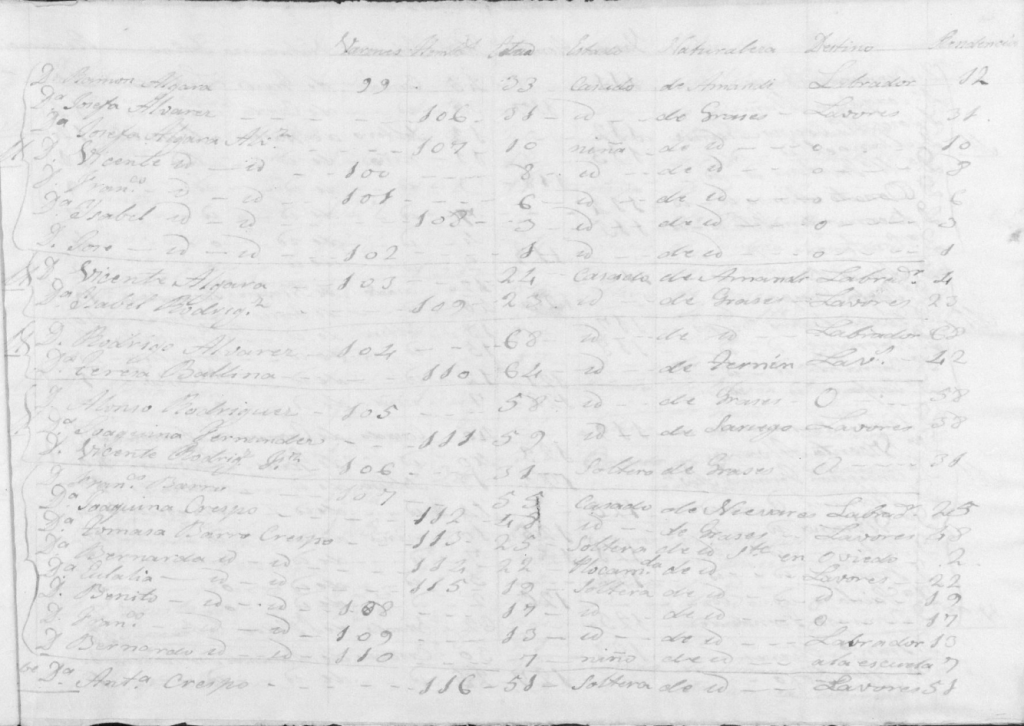 Varones Edad Estado Naturaleza Destino Residencia
Dn. Ramon Algara 99 33 Casado de Amandi Labrador 12
Da. Josefa Alvarez 106 51 id de Grases Lavores 31
Da. Josefa Algara Alv. 107 10 niña de id o 10
D. Vicente id id 100 8 id de id o 8
D. Fran.co id id 101 6 id de id o 6
Da. Isabel id id 108 3 id de id o 3
D. Jose id id 102 1 id de id o 1
D. Vicente Algara 103 24 Casado de Amandi Labrad.r 4
Da. Isabel Rodrig.z 109 de Grases Lavores 23
D. Rodrigo Alvarez 104 68 id de id Labrador 68
Da. Teresa Ballina 110 64 id de Lav.s 42
D. Alonso Rodriguez 105 58 id de Grases O 58
Da. Joaquina Fernandez 111 59 id de Sariego Lavores 38
D. Vicente Rodrig. 106 31 Soltero de Grases id 31
D. Fran.co Barro 107 55 Casado de Nievares Labad.r 25
Da. Joaquina Crespo 112 id de Grases Lavores 48
Da. Tomasa Barro Crespo 113 25 Soltera de id en Oviedo 2
Da. Bernarda id id 114 22 de id Lavores 22
Da. Eulalia id id 115 19 Soltera de id id 19
D. Benito id id 108 17 id de id o 17
D. Fran.co id id 109 13 id de id Labrador 13
D. Bernardo id id 110 7 niño de id a la escuela 7
Da. Ant.a Crespo 116 51 Soltera de id Lavores 51